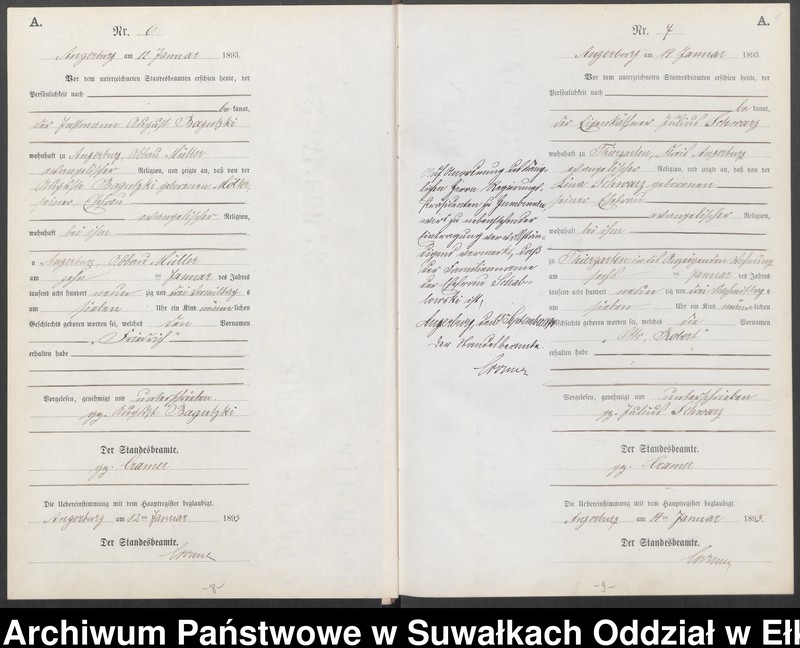 A.
Nr. 6
Angerburg am 12 Januar 1893.
Vor dem unterzeichneten Standesbeamten erschien heute, der
Persönlichkeit nach
be kannt,
der Instmann August Bagutzki
wohnhaft zu Angerburg, Abbau Müller
evangelischer Religion, und zeigte an, daß von der
Auguste Bagutzki geborenen Möller,
seiner Ehefrau
evangelischer Religion,
wohnhaft bei ihm
u Angerburg, Abbau Müller
am zehn ten Januar des Jahres
tausend acht hundert neun zig und drei Vormittags
um sieben Uhr ein Kind männlichen
Geschlechts geboren worden sei, welches den Vornamen
„Friedrich"
erhalten habe
Vorgelesen, genehmigt und unterschrieben
gz. August Bagutzki
Der Standesbeamte.
gz. Cramer
Die Uebereinstimmung mit dem Hauptregister beglaubigt.
Angerburg am 12ten Januar 1893
Der Standesbeamte.
Cramer
-8-
A.
Nr. 7
Angerburg am 14 Januar 1893.
Vor dem unterzeichneten Standesbeamten erschien heute, der
Persönlichkeit nach
be kannt,
der Eigenkäthner Julius Schwarz
wohnhaft zu Thiergarten, Kreis Angerburg
evangelischer Religion, und zeigte an, daß von der
Lina Schwarz geborenen
seiner Ehefrau
evangelischer Religion,
wohnhaft bei ihm
zu Thiergarten in des Anzeigenden Wohnung
am sechs ten Januar des Jahres
tausend acht hundert neun zig und drei Nachmittags
um sieben Uhr ein Kind männlichen
Geschlechts geboren worden sei, welches die Vornamen
„Otto, Robert"
erhalten habe
Vorgelesen, genehmigt und unterschrieben
gz. Julius Schwarz
Der Standesbeamte.
gz. Cramer
Die Uebereinstimmung mit dem Hauptregister beglaubigt.
Angerburg am 14ten Januar 1893.
Der Standesbeamte.
Cramer
-9-
Auf Anordnung des König-
lichen Herrn Regierungs-
Präsidenten zu Gumbinnen
wird zu nebenstehender
Eintragung vervollstän-
digend vermerkt, daß
der Familienname
der Ehefrau Schab-
lowski ist.
Angerburg, den September
Der Standesbeamte.
Cramer
Archiwum Państwowe w Suwałkach Oddział w Ełk